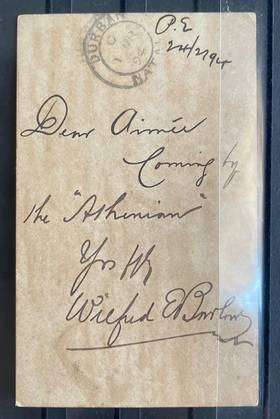 DURBAN
NATAL
P.E
24/2/94
Dear Aimée
Coming by
the "Athenian"
Yrs
Wilfred E Barlow